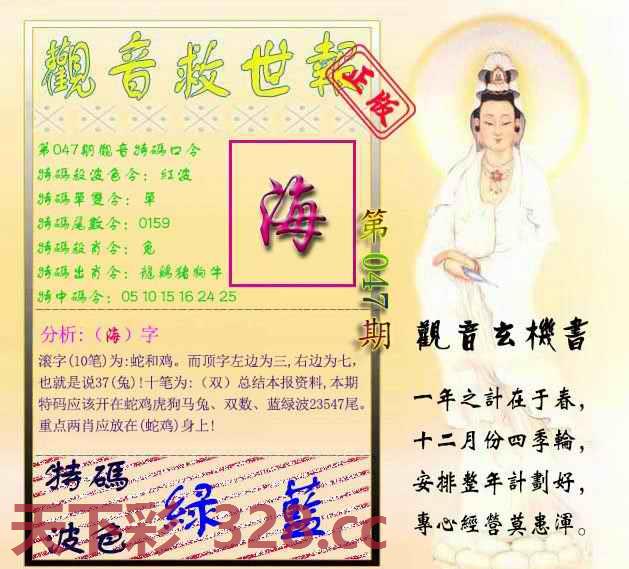 觀音救世報
正版
第047期觀音特碼口令
特碼殺波色令：紅波
特碼單雙令：單
特碼尾數令：0159
特碼殺肖令：兔
特碼出肖令：龍鷄猪狗牛
特中碼令：05 10 15 16 24 25
海
第047期
分析:（海）字
滚字(10笔)为:蛇和鸡。而顶字左边为三,右边为七,
也就是说37(兔)!十笔为:（双）总结本报资料,本期
特码应该开在蛇鸡虎狗马兔、双数、蓝绿波23547尾。
重点两肖应放在(蛇鸡)身上!
特碼
波色
綠 藍
觀音玄機書
一年之計在于春，
十二月份四季輪，
安排整年計劃好，
專心經營莫患渾。
天下彩 328.cc